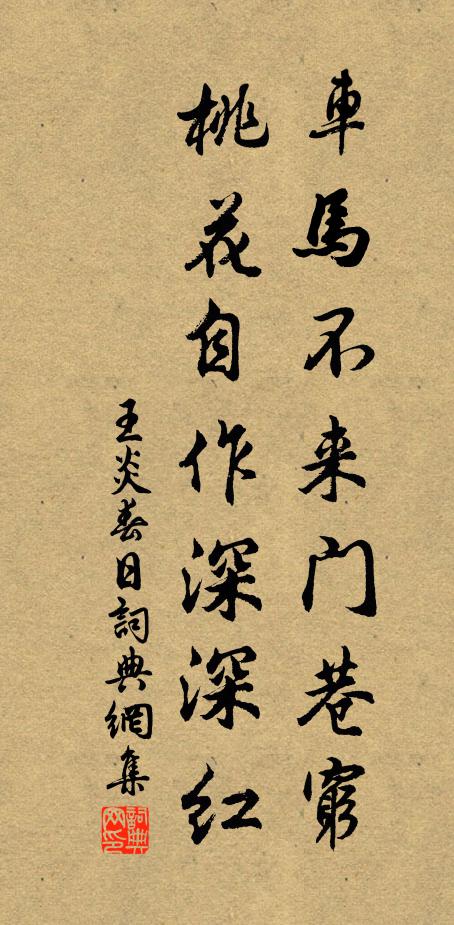 車馬不来门巷窮
桃花自作深深红
王炎春日詞典網集
詞典网印